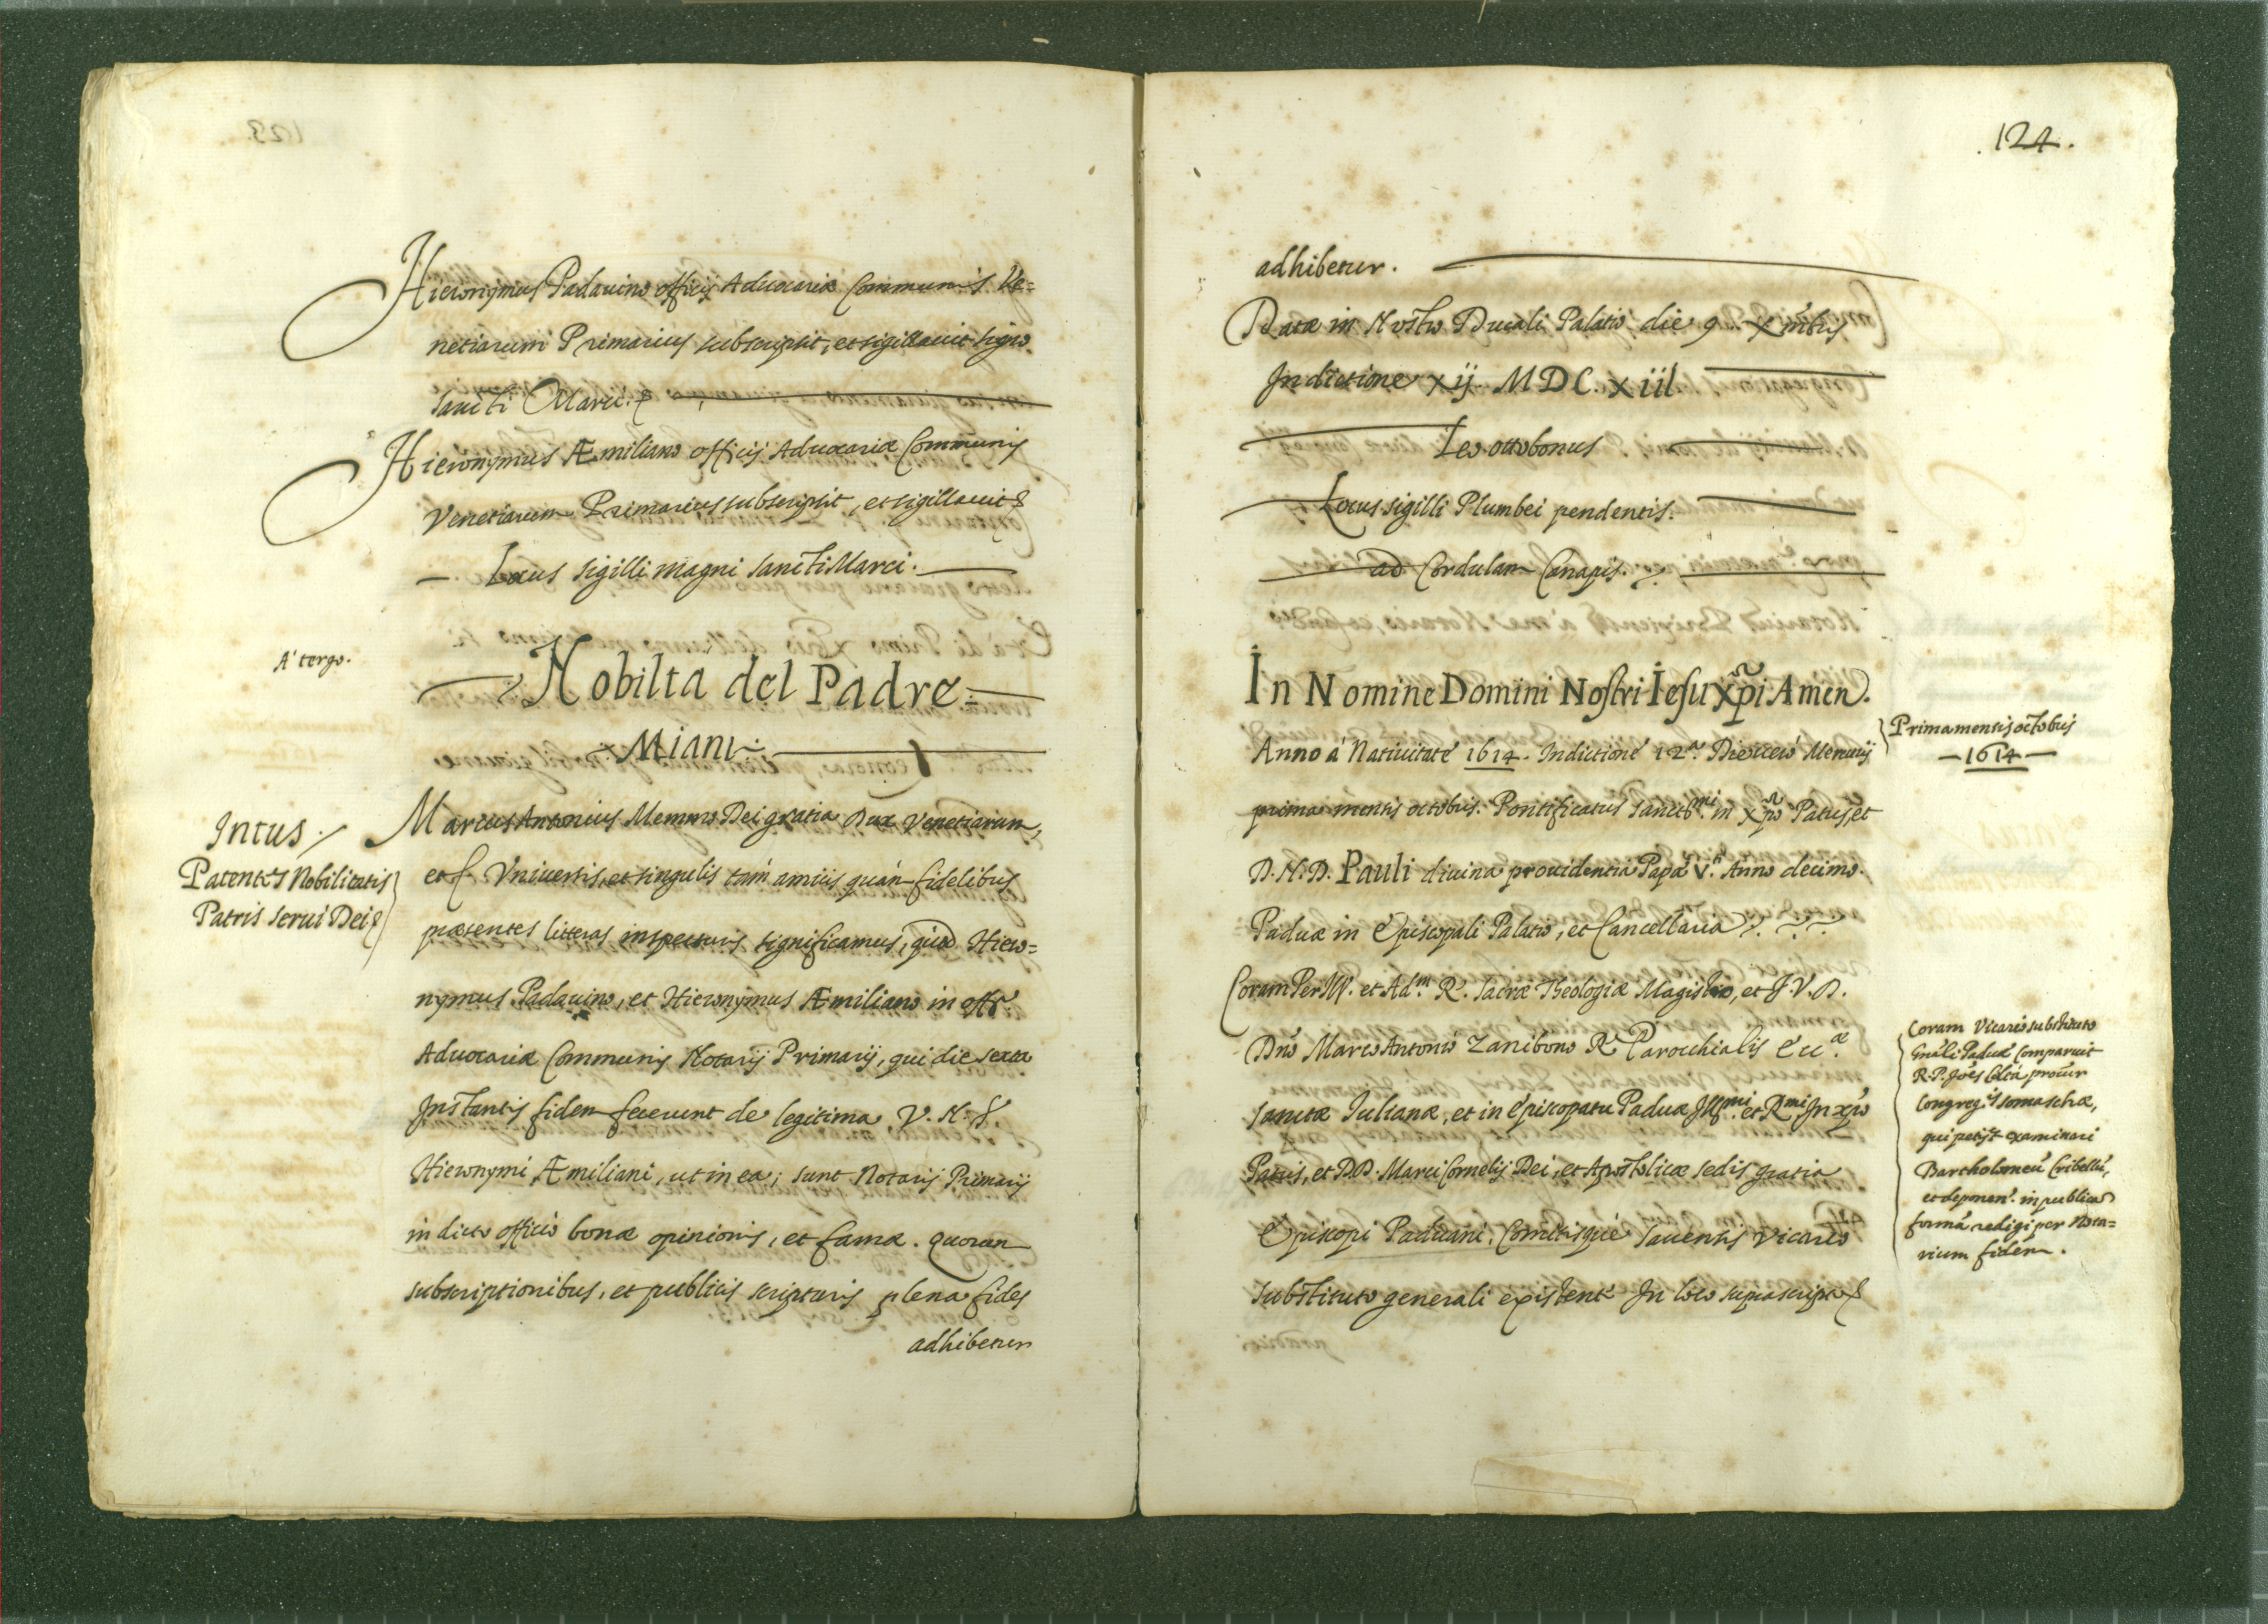 Hieronymus Padauino officij Aduocariæ Communis Ve=
netiarum Primarius subscripsit, et sigillauit signo
Sancti Marci.
Hieronymus Æmiliano officij Aduocariæ Communis
Venetiarum Primarius subscripsit, et sigillauit
Locus sigilli magni Sancti Marci.
A' tergo.
Nobilta del Padre
Miani
Intus
Patentes Nobilitatis
Patris serui Dei
Marcus Antonius Memmo Dei gratia Dux Venetiarum,
et Vniuersis, et singulis tam amicis quàm fidelibus
præsentes litteras inspecturis significamus, quod Hiero=
nymus Padauino, et Hieronymus Æmiliano in offo
Aduocariæ Communis Notarij Primarij, qui die sexta
Instantis fidem fecerunt de legitima V. N. S.
Hieronymi Æmiliani, ut in ea; sunt Notarij Primarij
in dicto officio bonæ opinionis, et famæ. quorum
subscriptionibus, et publicis scripturis plena fides
adhibetur
124.
adhibetur.
Datæ in Nostro Ducali Palatio, die 9 Xmbris
Indictione xij. MDC.xiii
Leo ottobonus
Locus sigilli Plumbei pendentis.
ad Cordulam Canapis.
In Nomine Domini Nostri Iesu Xpi Amen.
Anno à Natiuitate 1614. Indictione 12.a Die uero Mercurij
Prima mensis octobris
1614
prima mensis octobris. Pontificatus Sanctmi. in Xpo Patris, et
D. N. D. Pauli diuina prouidentia Papæ V.ti Anno decimo.
Paduæ in Episcopali Palatio, et Cancellaria
Coram Per Ill. et Adm. R. sacræ Theologiæ Magistro, et J. V. D.
Dno Marco Antonio Zanibono Re Parocchialis Ecc.æ
Sanctæ Iulianæ, et in Episcopatu Paduæ Illmi. et Rmi. In xpo
Patris, et DD. Marci Cornelij Dei, et Apostolicæ sedis gratia
Episcopi Paduani, Comitisque Sauensis Vicario
substituto generali existente In loco suprascripto
Coram Vicario substituto
gnāli Paduæ Comparuit
R. P. Joēs Calta procūr
Congreg.is Somaschæ,
qui petijt examinari
Bartholomeū Cribellū,
et deponen. in publicā
formā redigi per Nota=
rium fidem.